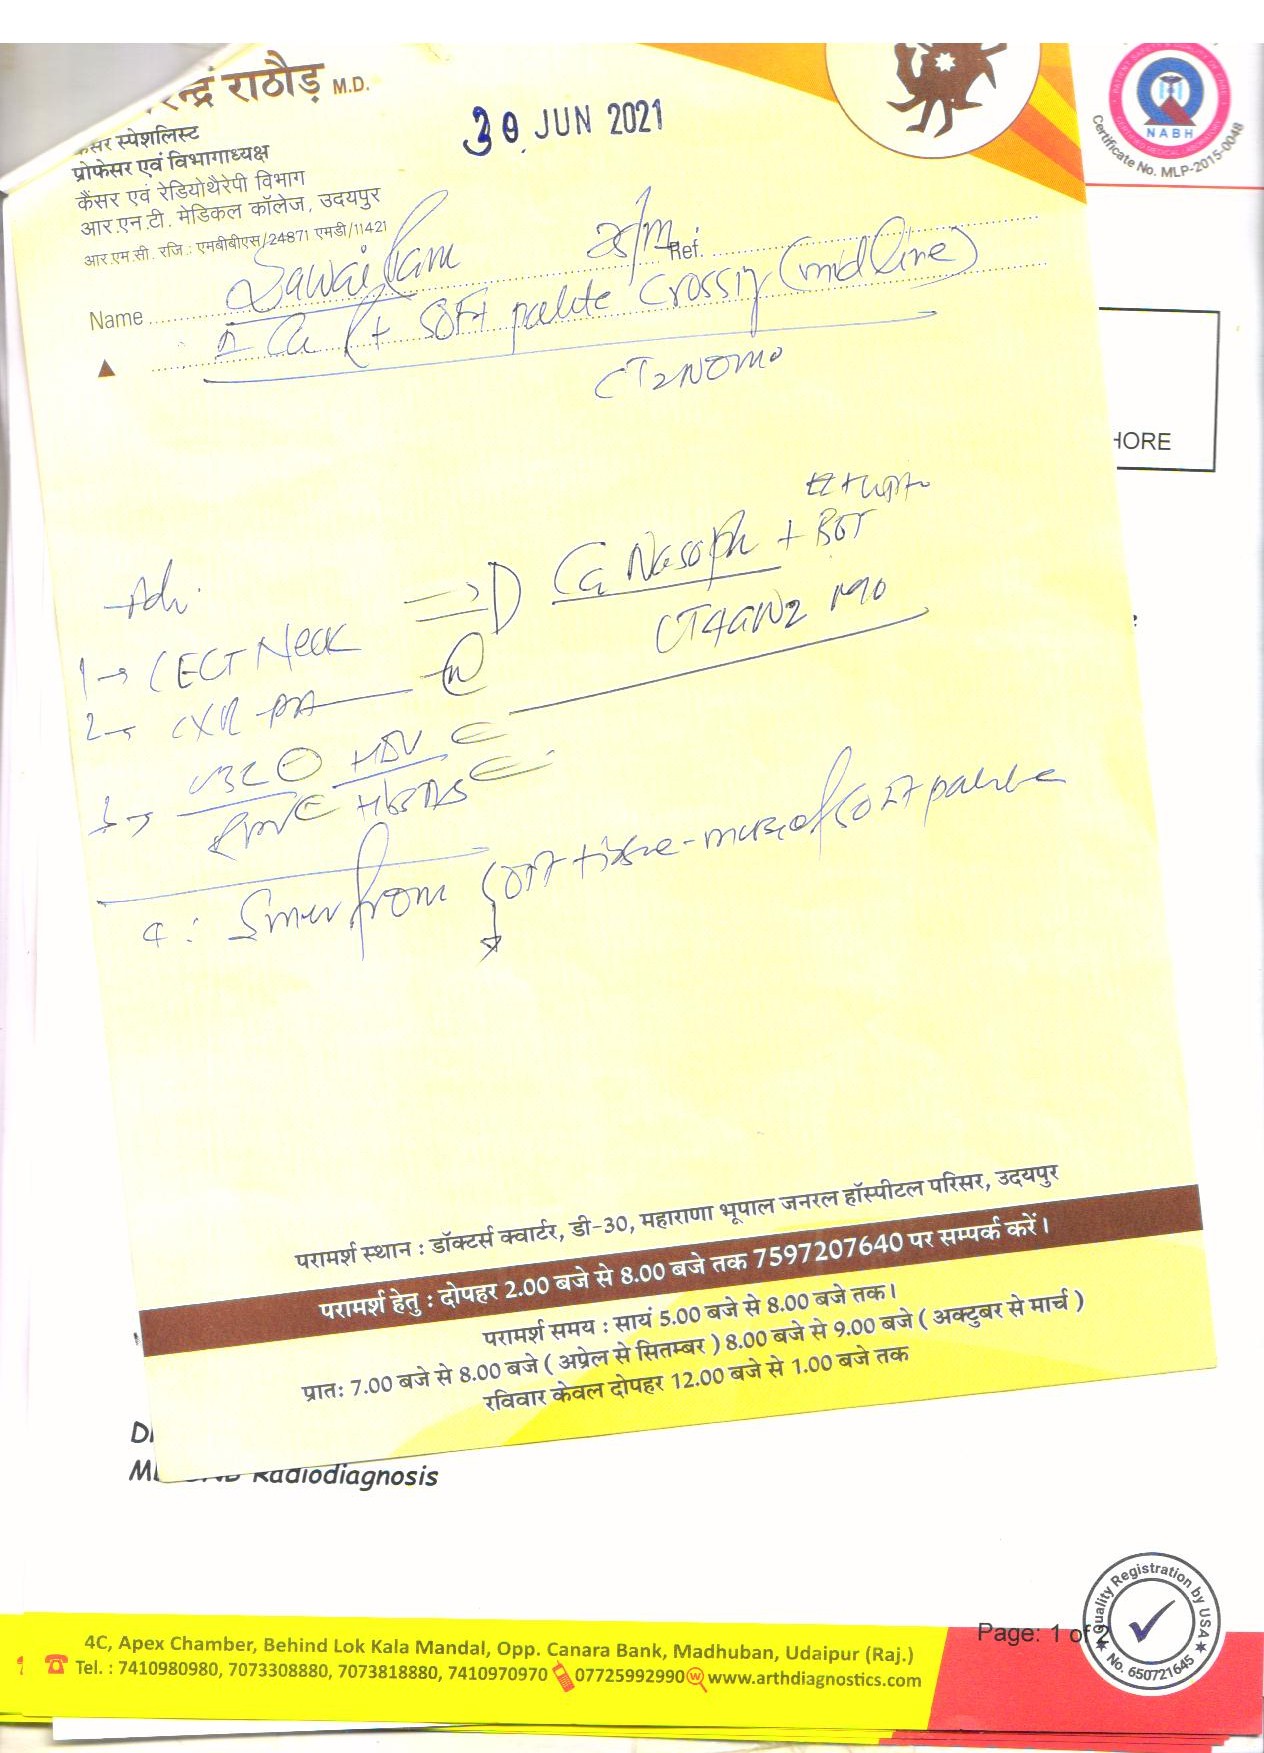 न्द्र राठौड़ M.D.
स्पेशलिस्ट
प्रोफेसर एवं विभागाध्यक्ष
कैंसर एवं रेडियोथैरेपी विभाग
आर.एन.टी. मेडिकल कॉलेज, उदयपुर
आर.एम.सी. रजि.: एमबीबीएस/24871 एमडी/11421
30 JUN 2021
NABH
Certificate No. MLP-2015-0048
Name Sawai Ram /m Ref.
Ca Rt soft palate crossing (midline)
CT2N0M0
HORE
Adv.
Ca Nasoph + BOT
CT4aN2M0
1→ CECT Neck
2→ CXR PA
3→ HIV
HbsAg
4: from soft tissue mass of soft palate
परामर्श स्थान : डॉक्टर्स क्वार्टर, डी-30, महाराणा भूपाल जनरल हॉस्पीटल परिसर, उदयपुर
परामर्श हेतु : दोपहर 2.00 बजे से 8.00 बजे तक 7597207640 पर सम्पर्क करें।
परामर्श समय : सायं 5.00 बजे से 8.00 बजे तक।
प्रातः 7.00 बजे से 8.00 बजे ( अप्रेल से सितम्बर ) 8.00 बजे से 9.00 बजे ( अक्टुबर से मार्च )
रविवार केवल दोपहर 12.00 बजे से 1.00 बजे तक
Radiodiagnosis
Quality Registration by USA
No. 650721645
Page: 1 of 2
4C, Apex Chamber, Behind Lok Kala Mandal, Opp. Canara Bank, Madhuban, Udaipur (Raj.)
Tel. : 7410980980, 7073308880, 7073818880, 7410970970 07725992990 www.arthdiagnostics.com